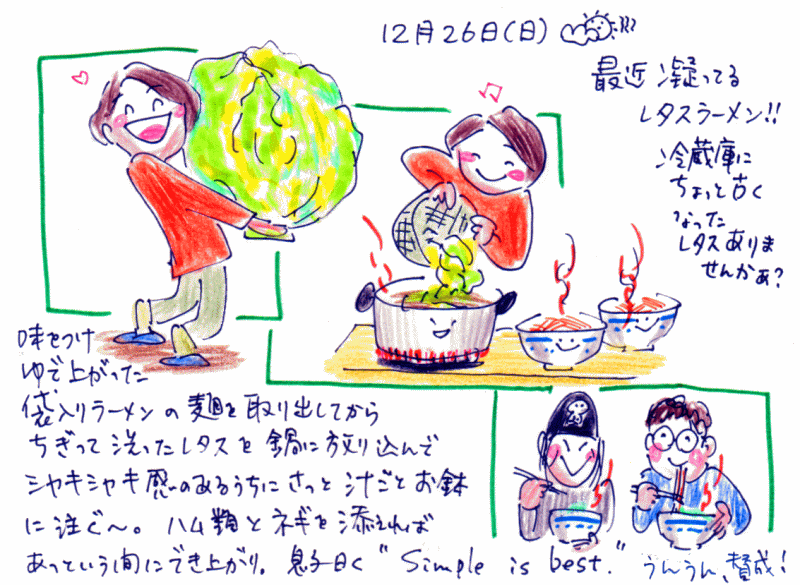 12月26日(日)
最近凝ってる
レタスラーメン!!
冷蔵庫に
ちょっと古く
なった
レタスありま
せんかぁ?
味をつけ
ゆで上がった
袋入りラーメンの麺を取り出してから
ちぎって洗ったレタスを鍋に放り込んで
シャキシャキ感のあるうちにさっと汁ごとお鉢
に注ぐ〜。ハム類とネギを添えれば
あっという間にでき上がり。息子曰く"Simple is best."
うんうん、賛成!